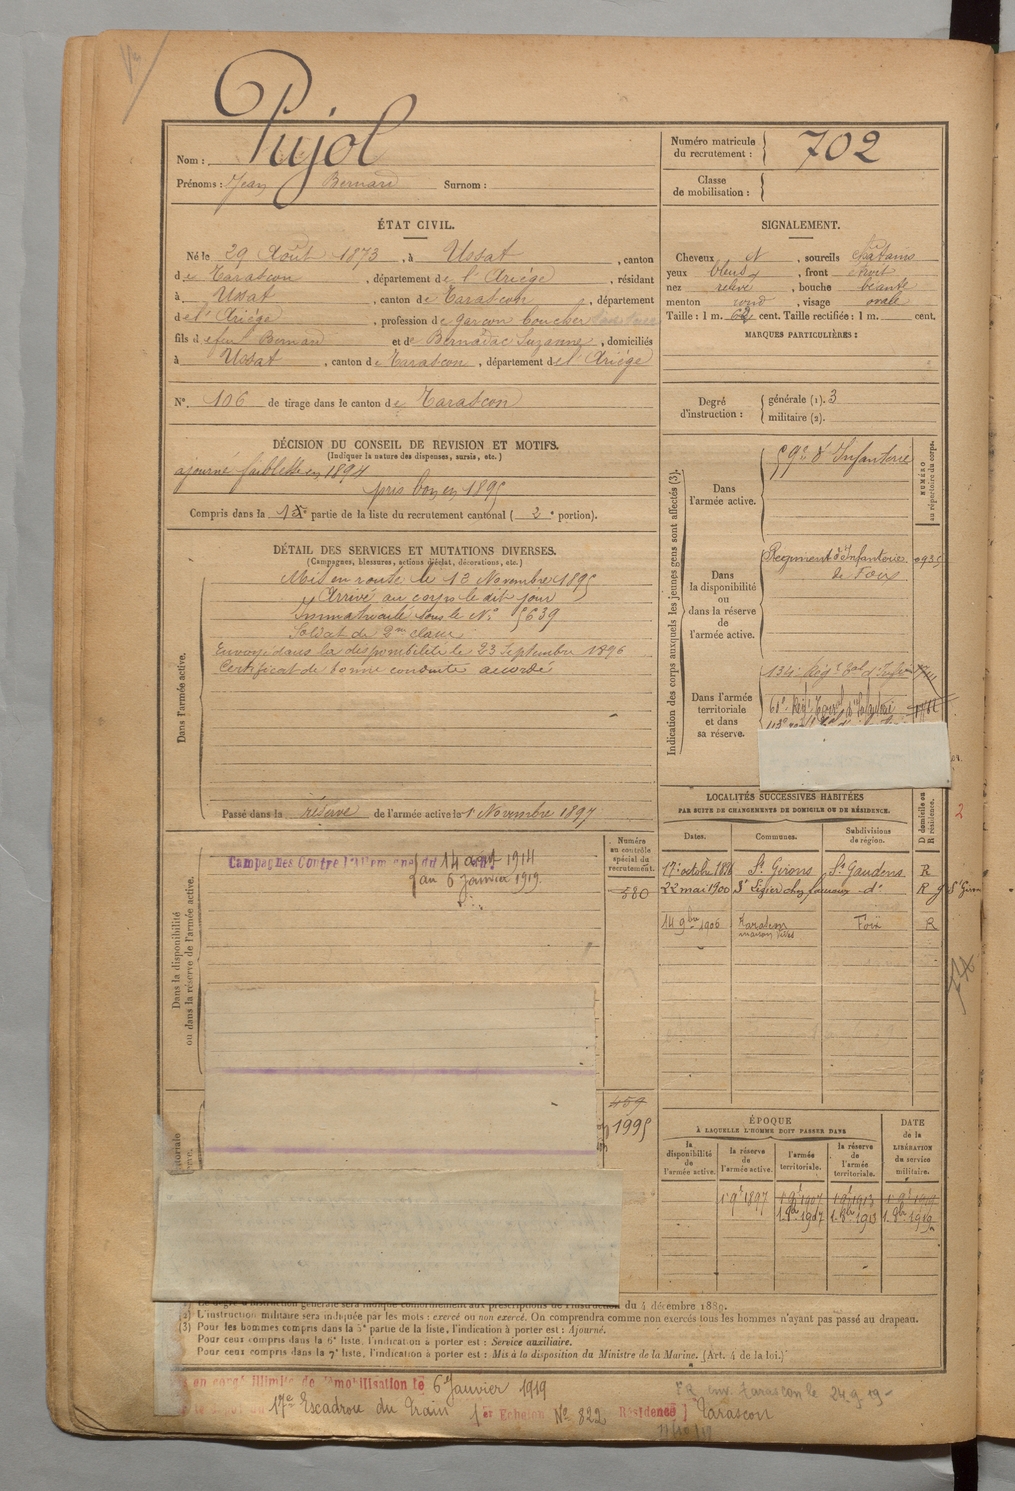 Pujol
Nom :
Prénoms : Jean Bernard Surnom :
Numéro matricule du recrutement : 702
Classe de mobilisation :
ÉTAT CIVIL.
Né le 29 Août 1873, à Ussat, canton
de Tarascon, département de l'Ariège, résidant
à Ussat, canton de Tarascon, département
de l'Ariège, profession de garçon boucher
fils d Bernard et de Bernadac Suzanne, domiciliés
à Ussat, canton de Tarascon, département de l'Ariège
N° 106 de tirage dans le canton de Tarascon
SIGNALEMENT.
Cheveux N, sourcils châtains
yeux bleus, front étroit
nez relevé, bouche béante
menton rond, visage ovale
Taille : 1 m. 62 cent. Taille rectifiée : 1 m. cent.
MARQUES PARTICULIÈRES :
Degré d'instruction : générale (1). 3
militaire (2).
DÉCISION DU CONSEIL DE REVISION ET MOTIFS.
(Indiquer la nature des dispenses, sursis, etc.)
ajourné faiblesse en 1894
pris bon en 1895
Compris dans la 1re partie de la liste du recrutement cantonal ( 2e portion).
DÉTAIL DES SERVICES ET MUTATIONS DIVERSES.
(Campagnes, blessures, actions d'éclat, décorations, etc.)
Dans l'armée active.
Mis en route le 13 Novembre 1895
Arrivé au corps le dit jour
Immatriculé sous le N° 5639
Soldat de 2me classe
Envoyé dans la disponibilité le 23 Septembre 1896
Certificat de bonne conduite accordé
Passé dans la réserve de l'armée active le 1r Novembre 1897
Indication des corps auxquels les jeunes gens sont affectés (3).
NUMÉRO au répertoire du corps.
Dans l'armée active.
59e d'Infanterie
Dans la disponibilité ou dans la réserve de l'armée active.
Régiment d'Infanterie 0935
de Foix
Dans l'armée territoriale et dans sa réserve.
134e Régt Tal d'Infie
LOCALITÉS SUCCESSIVES HABITÉES
PAR SUITE DE CHANGEMENTS DE DOMICILE OU DE RÉSIDENCE.
Dates. Communes. Subdivisions de région. D domicile ou R résidence.
17 octobre 1898 St Girons St Gaudens R
22 mai 1900 St Lizier do R
14 9bre 1906 Tarascon Foix R
2
Dans la disponibilité ou dans la réserve de l'armée active.
Numéro au contrôle spécial du recrutement.
580
Campagnes Contre l'Allemagne du 14 août 1914
au 6 Janvier 1919
459
1995
ÉPOQUE
À LAQUELLE L'HOMME DOIT PASSER DANS
la disponibilité de l'armée active. la réserve de l'armée active. l'armée territoriale. la réserve de l'armée territoriale. DATE de la LIBÉRATION du service militaire.
1r 9b 1897 1r 9b 1907 1r 9b 1913 1r 9b 1919
(1) Le degré d'instruction générale sera indiqué conformément aux prescriptions de l'instruction du 4 décembre 1889.
(2) L'instruction militaire sera indiquée par les mots : exercé ou non exercé. On comprendra comme non exercés tous les hommes n'ayant pas passé au drapeau.
(3) Pour les hommes compris dans la 5e partie de la liste, l'indication à porter est : Ajourné.
Pour ceux compris dans la 6e liste, l'indication à porter est : Service auxiliaire.
Pour ceux compris dans la 7e liste, l'indication à porter est : Mis à la disposition du Ministre de la Marine. (Art. 4 de la loi.)
en congé illimité de démobilisation le 6 Janvier 1919
17e Escadron du Train 1er Echelon No 822 Résidence Tarascon
Tarascon le 24 9 19